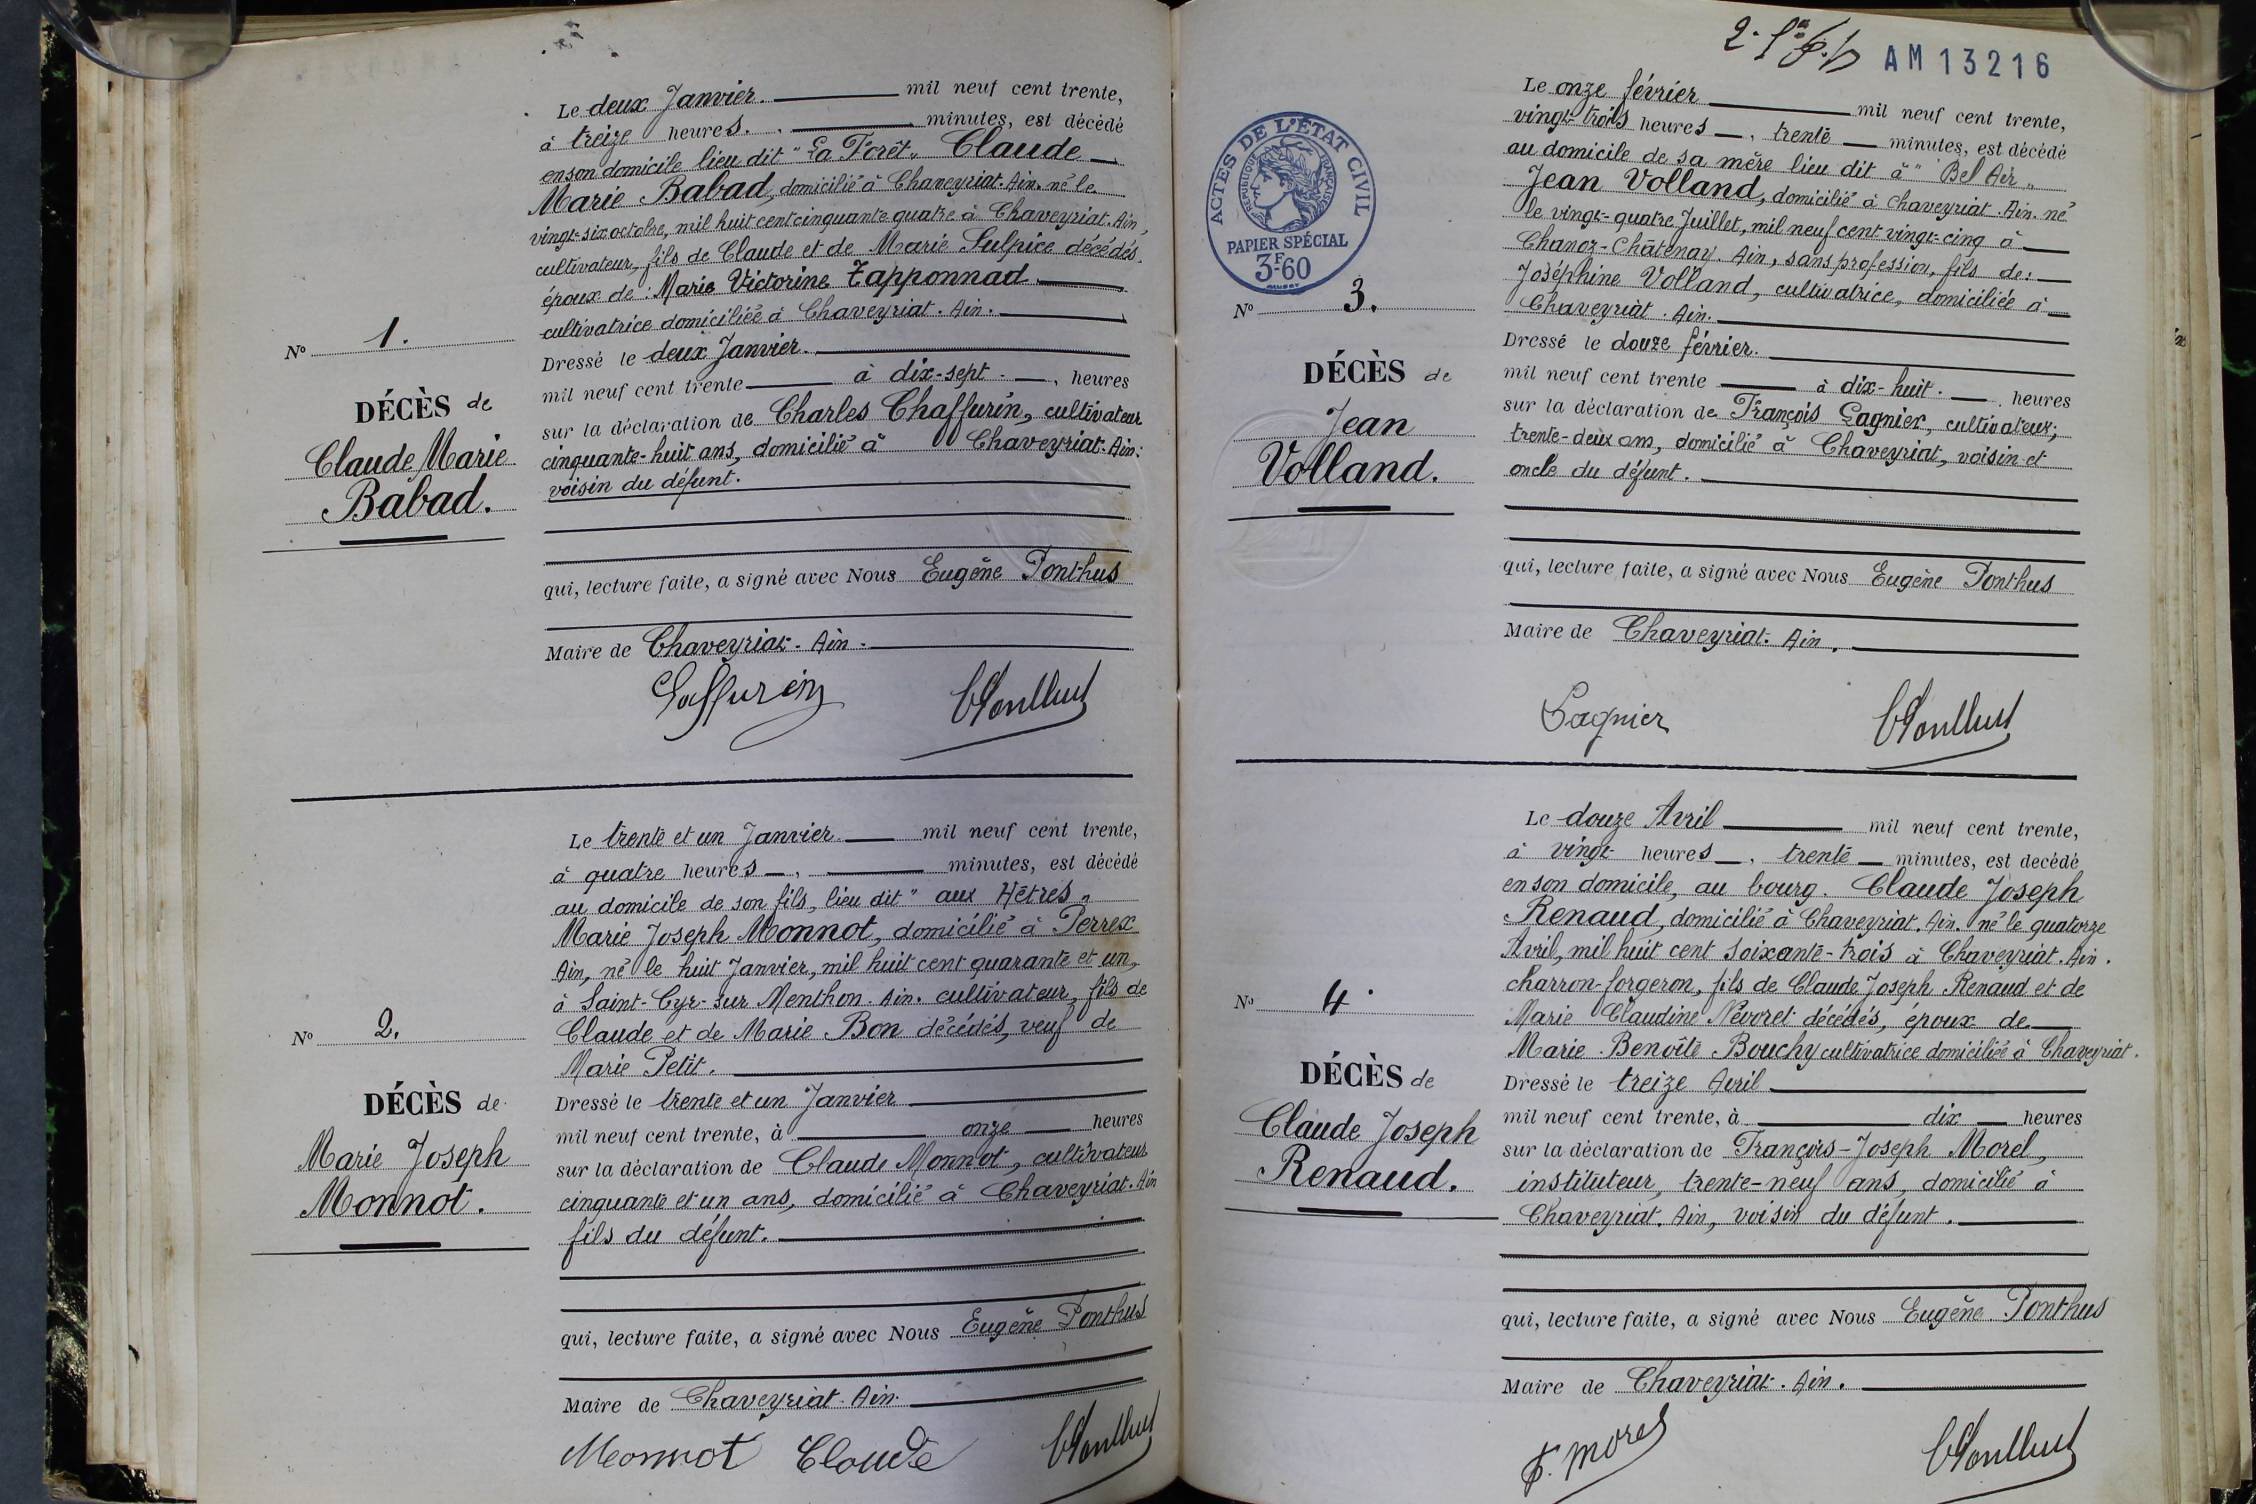 Le deux Janvier. mil neuf cent trente,
à treize heures. minutes, est décédé
en son domicile lieu dit "La Forêt" Claude
Marie Babad, domicilié à Chaveyriat. Ain. né le
vingt-six octobre, mil huit cent cinquante quatre à Chaveyriat. Ain,
cultivateur, fils de Claude et de Marie Sulpice décédés.
époux de Marie Victorine Tapponnad
cultivatrice domiciliée à Chaveyriat. Ain.
Nº 1.
DÉCÈS de
Claude Marie
Babad.
Dressé le deux Janvier.
mil neuf cent trente à dix-sept heures
sur la déclaration de Charles Chaffurin, cultivateur
cinquante-huit ans, domicilié à Chaveyriat. Ain.
voisin du défunt.
qui, lecture faite, a signé avec Nous Eugène Ponthus
Maire de Chaveyriat. Ain.
Le trente et un Janvier. mil neuf cent trente,
à quatre heures, minutes, est décédé
au domicile de son fils, lieu dit "aux Hêtres"
Marie Joseph Monnot, domicilié à Perrex
Ain, né le huit Janvier, mil huit cent quarante et un,
à Saint-Cyr-sur Menthon. Ain. cultivateur, fils de
Claude et de Marie Bon décédés, veuf de
Marie Petit.
Nº 2.
DÉCÈS de
Marie Joseph
Monnot.
Dressé le trente et un Janvier
mil neuf cent trente, à onze heures
sur la déclaration de Claude Monnot, cultivateur
cinquante et un ans, domicilié à Chaveyriat. Ain
fils du défunt.
qui, lecture faite, a signé avec Nous Eugène Ponthus
Maire de Chaveyriat. Ain.
Monnot Claude
AM13216
ACTES DE L'ÉTAT CIVIL
RÉPUBLIQUE FRANÇAISE
PAPIER SPÉCIAL
3F.60
Le onze février mil neuf cent trente,
vingt-trois heures, trente minutes, est décédé
au domicile de sa mère lieu dit à "Bel Air"
Jean Volland, domicilié à Chaveyriat. Ain. né
le vingt-quatre Juillet, mil neuf cent vingt-cinq à
Chanoz-Châtenay. Ain, sans profession, fils de:
Joséphine Volland, cultivatrice, domiciliée à
Chaveyriat. Ain.
Nº 3.
DÉCÈS de
Jean
Volland.
Dressé le douze février.
mil neuf cent trente à dix-huit. heures
sur la déclaration de François Gagnier, cultivateur,
trente-deux ans, domicilié à Chaveyriat, voisin et
oncle du défunt.
qui, lecture faite, a signé avec Nous Eugène Ponthus
Maire de Chaveyriat. Ain.
Gagnier
Le douze Avril mil neuf cent trente,
à vingt heures, trente minutes, est décédé
en son domicile, au bourg. Claude Joseph
Renaud, domicilié à Chaveyriat. Ain. né le quatorze
Avril, mil huit cent soixante-trois à Chaveyriat. Ain.
charron-forgeron, fils de Claude Joseph Renaud et de
Marie Claudine Névoret décédés, époux de
Marie Benoîte Bouchy cultivatrice domiciliée à Chaveyriat.
Nº 4.
DÉCÈS de
Claude Joseph
Renaud.
Dressé le treize Avril
mil neuf cent trente, à dix heures
sur la déclaration de François-Joseph Morel,
instituteur, trente-neuf ans, domicilié à
Chaveyriat. Ain, voisin du défunt.
qui, lecture faite, a signé avec Nous Eugène Ponthus
Maire de Chaveyriat. Ain.
F. Morel